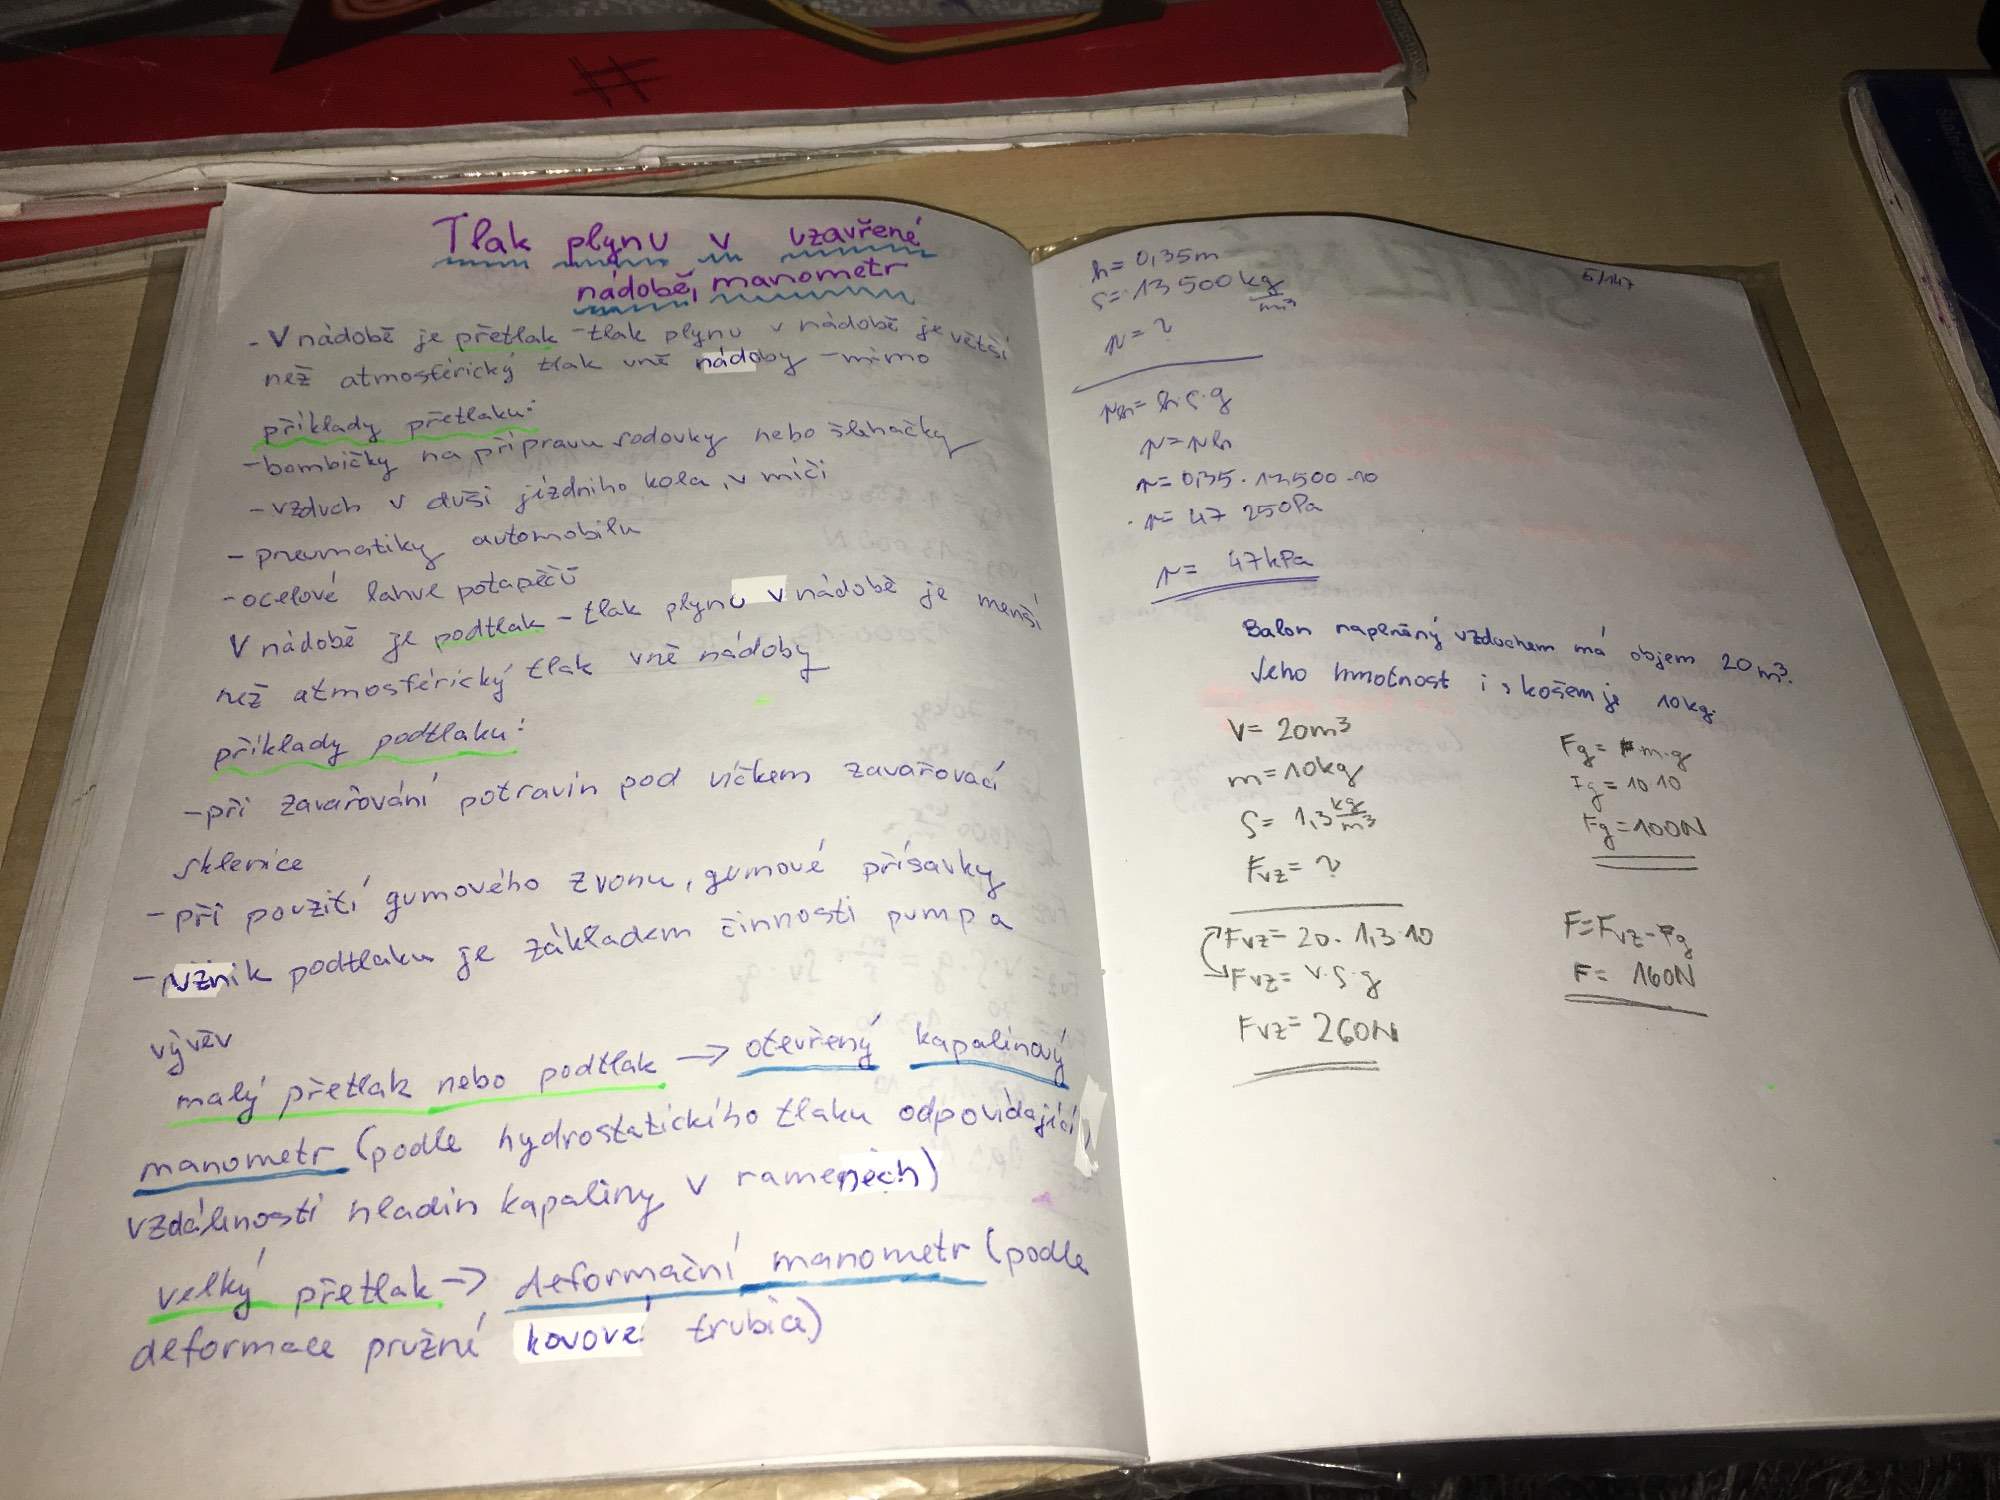 Tlak plynu v uzavřené
nádobě, manometr
- V nádobě je přetlak - tlak plynu v nádobě je větší
než atmosférický tlak vně nádoby - mimo
příklady přetlaku:
- bombičky na přípravu sodovky nebo šlehačky
- vzduch v duši jízdního kola, v míči
- pneumatiky automobilu
- ocelové lahve potapěčů
V nádobě je podtlak - tlak plynu v nádobě je menší
než atmosférický tlak vně nádoby
příklady podtlaku:
- při zavařování potravin pod víčkem zavařovací
sklenice
- při použití gumového zvonu, gumové přísavky
- vznik podtlaku je základem činnosti pump a
vývěv
malý přetlak nebo podtlak → otevřený kapalinový
manometr (podle hydrostatického tlaku odpovídající
vzdálnosti hladin kapaliny v ramenech)
velký přetlak → deformační manometr (podle
deformace pružné kovové trubice)
5/147
h = 0,35m
ρ = 13 500 kg/m³
p = ?
ph = h·ρ·g
p = ph
p = 0,35 · 13500 · 10
p = 47 250Pa
p = 47kPa
Balon naplněný vzduchem má objem 20m³.
Jeho hmotnost i s košem je 10kg.
V = 20m³
m = 10kg
ρ = 1,3 kg/m³
Fvz = ?
Fvz = 20 · 1,3 · 10
Fvz = V·ρ·g
Fvz = 260N
Fg = m·g
Fg = 10·10
Fg = 100N
F = Fvz - Fg
F = 160N